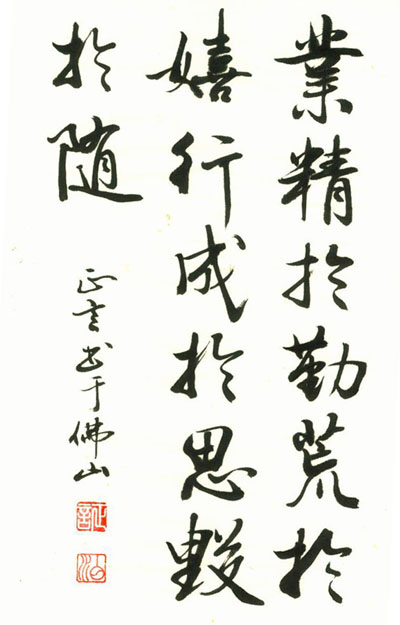 業精於勤荒於
嬉行成於思毀
於随
正言书于佛山